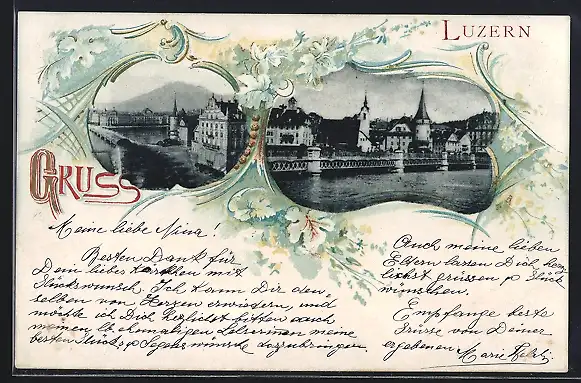 LUZERN
GRUSS
Meine liebe Nina!
Besten Dank für
Dein liebes Kärtchen mit
Glückswunsch. Ich kann Dir den
selben von Herzen erwiedern, und
möchte ich Dich höflichst bitten auch
meinen lb ehemaligen Lehrerinen meine
besten Glücks p Segenswünsche darzubringen.
Auch meine lieben
Eltern lassen Dich herz
lichst grüssen p Glück
wünschen.
Empfange beste
Grüsse von Deiner
ergebenen Marie